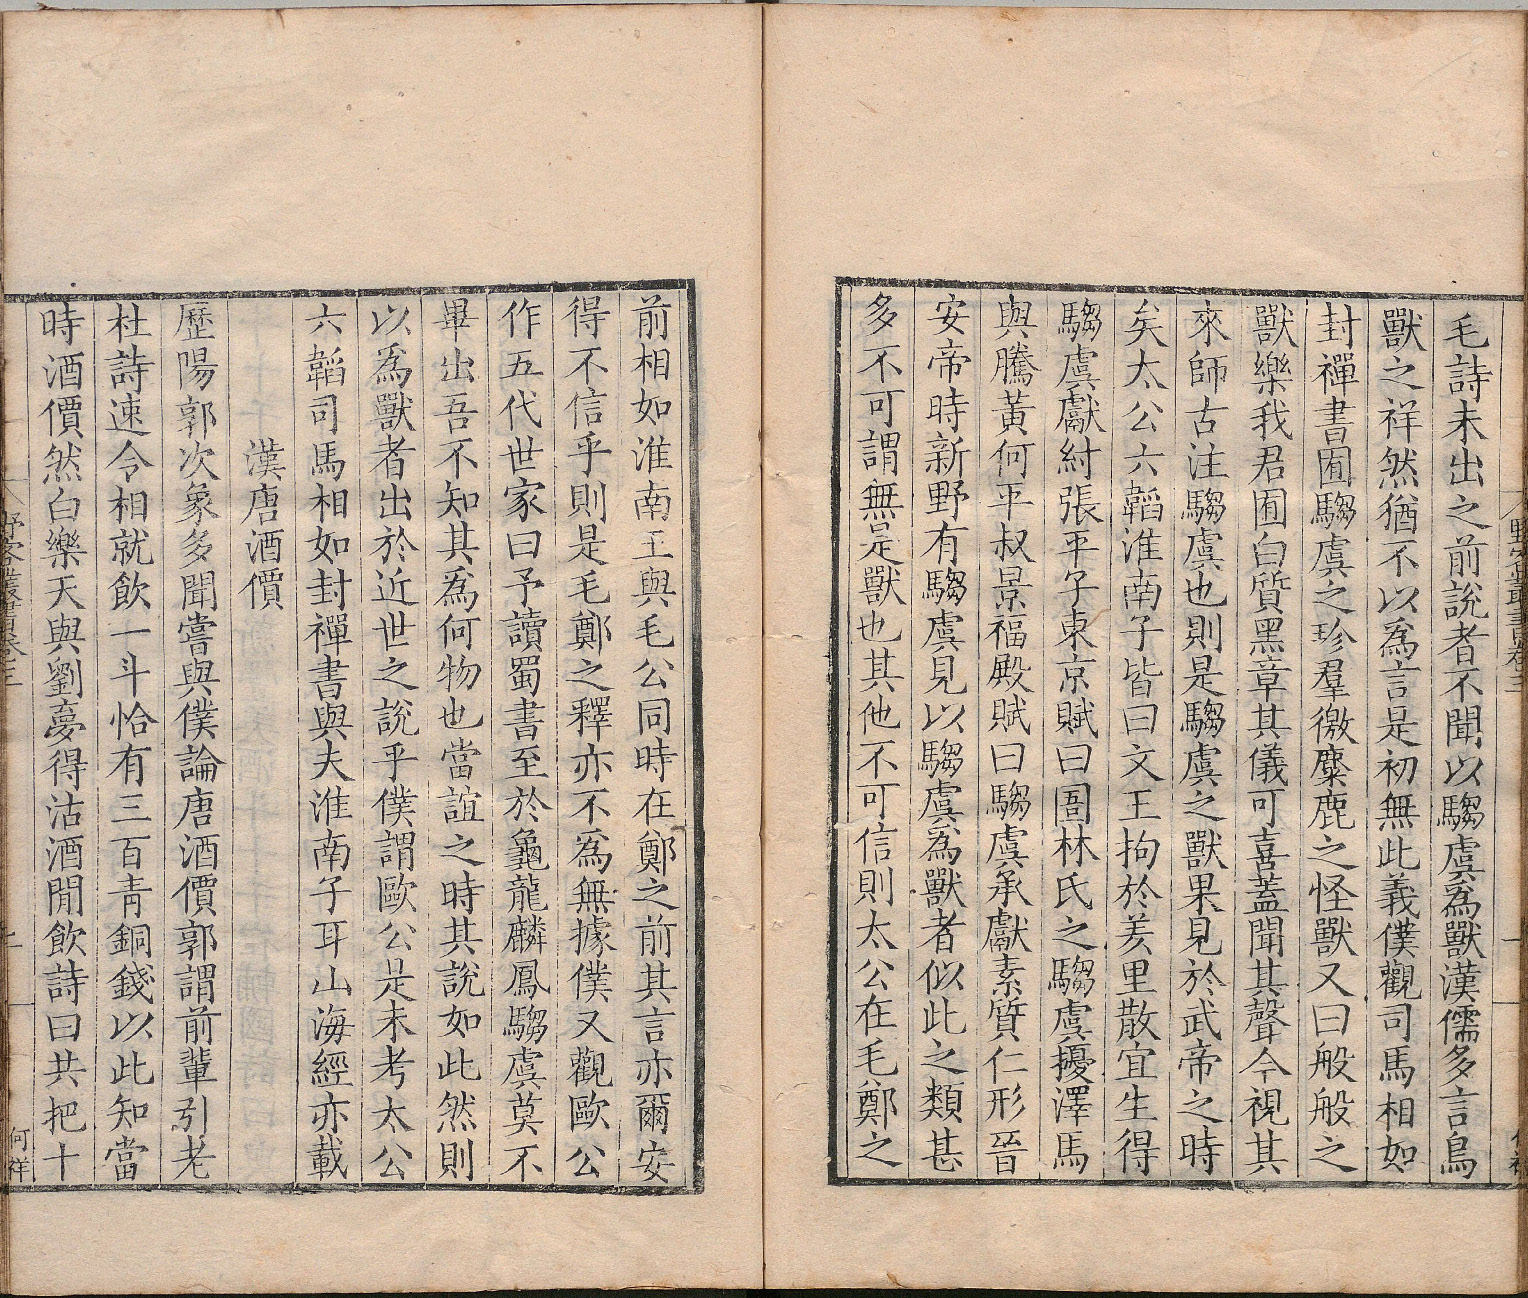 毛詩未出之前說者不聞以騶虞爲獸漢儒多言鳥
獸之祥然猶不以爲言是初無此義僕觀司馬相如
封禪書囿騶虞之珍羣徼麋鹿之怪獸又曰般般之
獸樂我君囿白質黑章其儀可喜蓋聞其聲今視其
來師古注騶虞也則是騶虞之獸果見於武帝之時
矣太公六韜淮南子皆曰文王拘於羑里散宜生得
騶虞獻紂張平子東京賦曰圄林氏之騶虞擾澤馬
與騰黃何平叔景福殿賦曰騶虞承獻素質仁形晉
安帝時新野有騶虞見以騶虞爲獸者似此之類甚
多不可謂無是獸也其他不可信則太公在毛鄭之
前相如淮南王與毛公同時在鄭之前其言亦爾安
得不信乎則是毛鄭之釋亦不爲無據僕又觀歐公
作五代世家曰予讀蜀書至於龜龍麟鳳騶虞莫不
畢出吾不知其爲何物也當誼之時其說如此然則
以爲獸者出於近世之說乎僕謂歐公是未考太公
六韜司馬相如封禪書與夫淮南子耳山海經亦載
漢唐酒價
歷陽郭次象多聞嘗與僕論唐酒價郭謂前輩引老
杜詩速令相就飲一斗恰有三百青銅錢以此知當
時酒價然白樂天與劉夢得沽酒閒飲詩曰共把十
野客叢書卷三
七
何祥